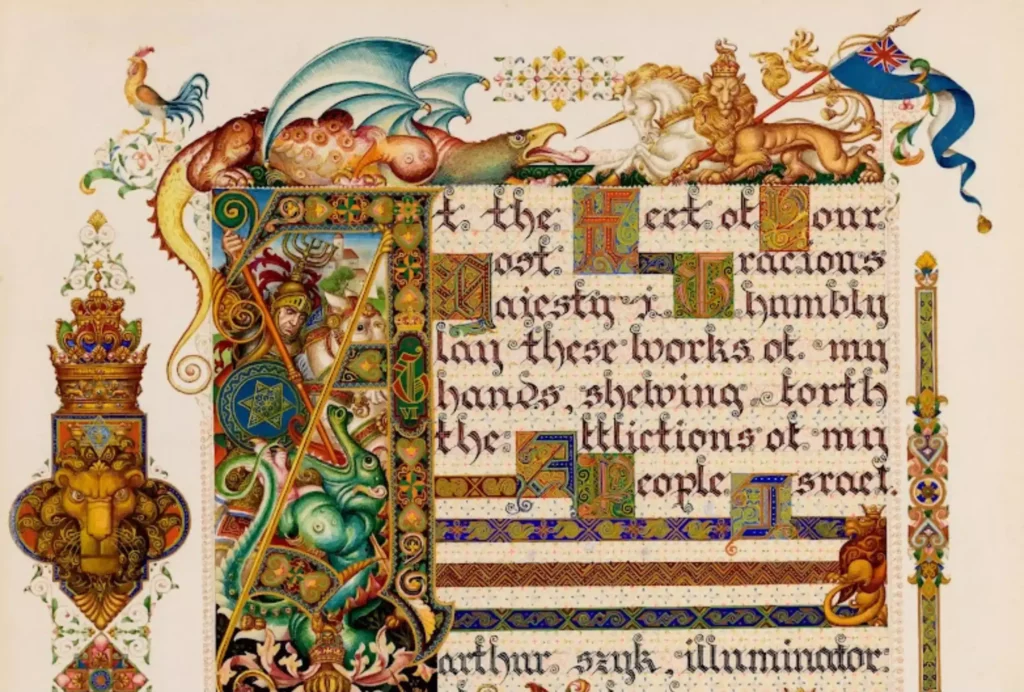 At the Feet of Your
Most Gracious
Majesty i humbly
lay these works of my
hands, shewing forth
the Afflictions of my
People Israel.
G
VI
arthur szyk, illuminator